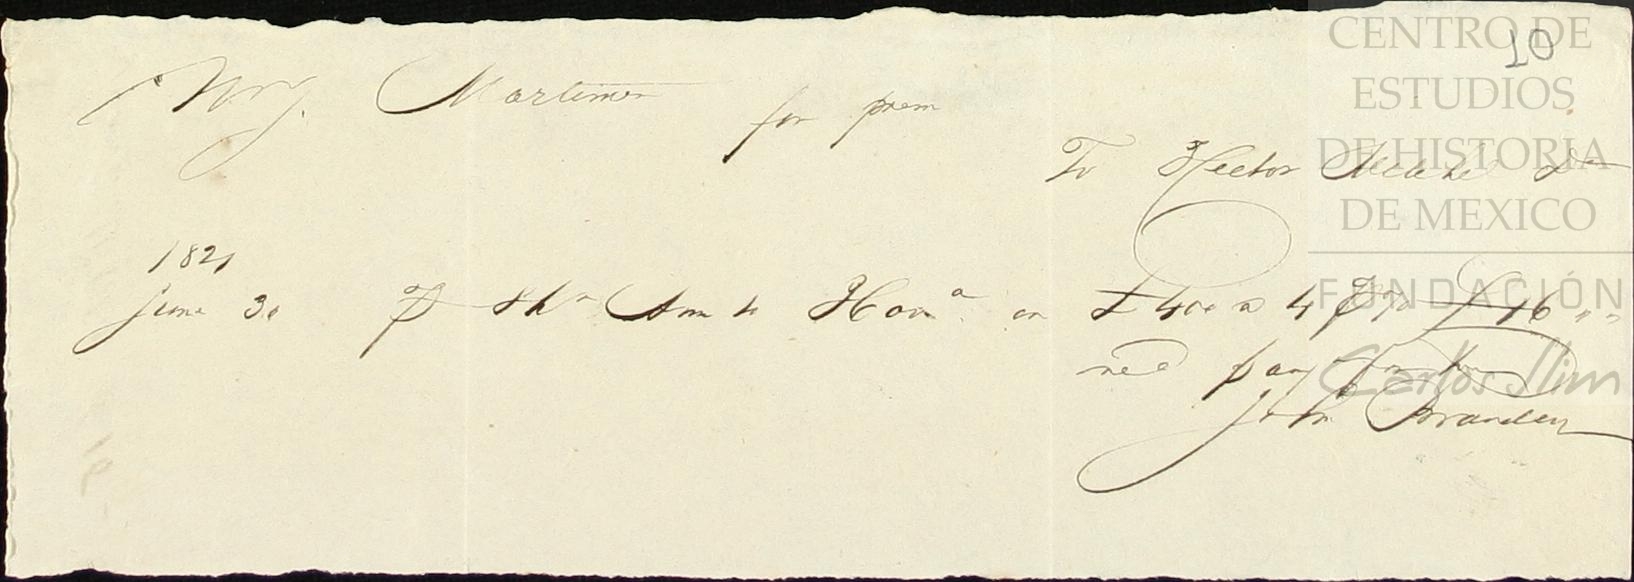 CENTRO DE
ESTUDIOS
DE HISTORIA
DE MEXICO
FUNDACIÓN
Carlos Slim
10
Martinez
for prem
To Hector Dr
1821
June 30 P Shr Ann to Hava on £ 400 a 4 P % £ 16 " "
recd pay for
John